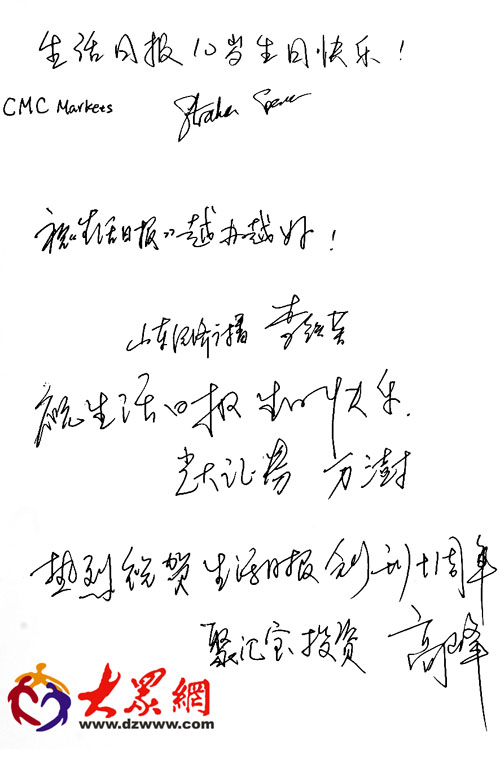 生活日报10岁生日快乐！
CMC Markets
祝《生活日报》越办越好！
山东经济广播
祝生活日报生日快乐.
光大证券 万澍
热烈祝贺生活日报创刊十周年
聚汇宝投资 高峰
大眾網
www.dzwww.com